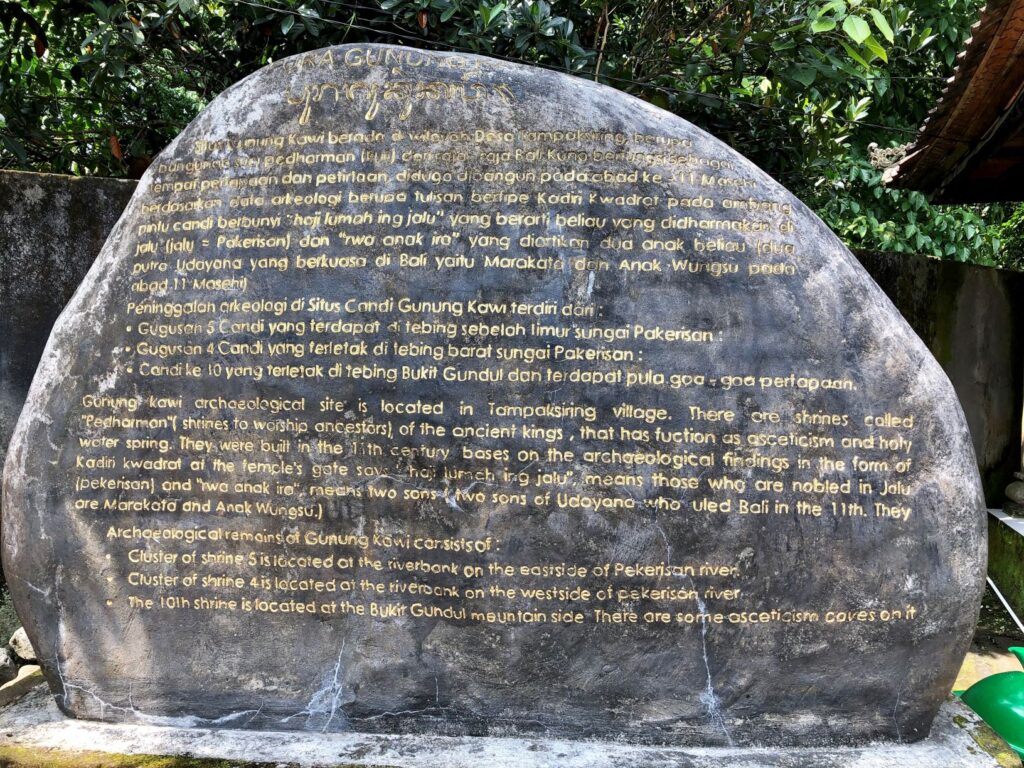 GUNUNG
Situs Gunung Kawi berada di wilayah Desa Tampaksiring, berupa
pedharman (kuil) dari raja-raja Bali Kuno berfungsi sebagai
tempat pertapaan dan petirtaan, diduga dibangun pada abad ke 11 Masehi
berdasarkan data arkeologi berupa Tulisan bertipe Kadiri Kwadrat pada ambang
pintu candi berbunyi "haji lumah ing jalu" yang berarti beliau yang didharmakan di
jalu (jalu = Pakerisan) dan "rwa anak ira" yang diartikan dua anak beliau (dua
putra Udayana yang berkuasa di Bali yaitu Marakata dan Anak Wungsu pada
abad 11 Masehi)
Peninggalan arkeologi di Situs Candi Gunung Kawi terdiri dari :
• Gugusan 5 Candi yang terdapat di tebing sebelah timur sungai Pakerisan :
• Gugusan 4 Candi yang terletak di tebing barat sungai Pakerisan :
• Candi ke 10 yang terletak di tebing Bukit Gundul dan terdapat pula goa - goa pertapaan.
Gunung kawi archaeological site is located in Tampaksiring village. There are shrines called
"Pedharman"( shrines to worship ancestors) of the ancient kings , that has fuction as asceticism and holy
water spring. They were built in the 11th century bases on the archaeological findings in the form of
Kadiri kwadrat at the temple's gate says " haji lumah ing jalu", means those who are nobled in Jalu
(pekerisan) and "rwa anak ira", means two sons ( two sons of Udayana who uled Bali in the 11th. They
are Marakata and Anak Wungsu.)
Archaeological remains of Gunung Kawi consists of :
• Cluster of shrine 5 is located at the riverbank on the eastside of Pekerisan river.
• Cluster of shrine 4 is located at the riverbank on the westside of pekerisan river.
• The 10th shrine is located at the Bukit Gundul mountain side There are some asceticism caves on it